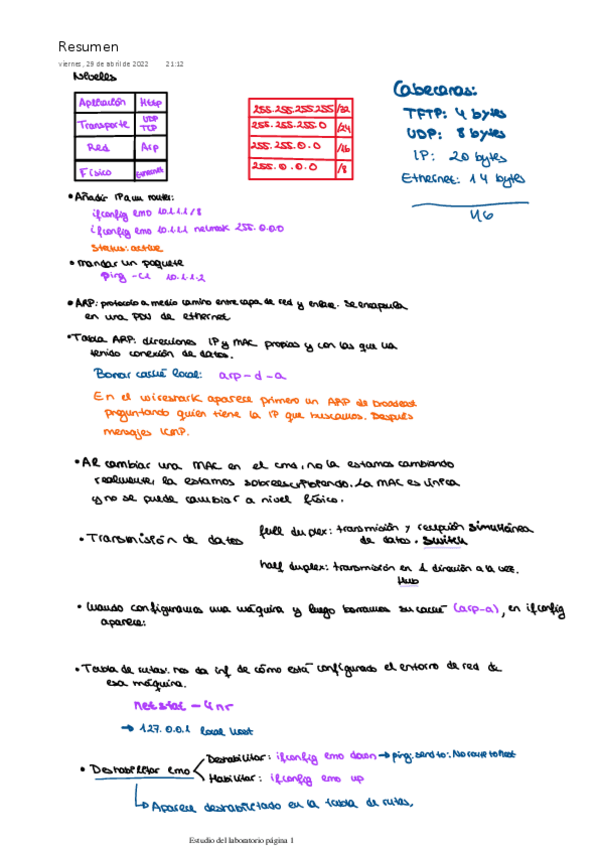 Resumen
viernes, 29 de abril de 2022 21:12
Niveles
Aplicación Http
Transporte UDP TCP
Red Arp
Físico Ethernet
255.255.255.255 /32
255.255.255.0 /24
255.255.0.0 /16
255.0.0.0 /8
Cabeceras:
TFTP: 4 bytes
UDP: 8 bytes
IP: 20 bytes
Ethernet: 14 bytes
46
• Añadir IP a un router:
ifconfig em0 10.1.1.1/8
ifconfig em0 10.1.1.1 netmask 255.0.0.0
Status: active
• mandar un paquete
Ping -c1 10.1.1.2
• ARP: protocolo a medio camino entre capa de red y enlace. Se encapsula
en una PDU de ethernet
• Tabla ARP: direcciones IP y MAC propias y con las que ha
tenido conexión de datos.
Borrar caché local: arp -d -a
En el wireshark aparece primero un ARP de broadcast
preguntando quien tiene la IP que buscamos. Después
mensajes ICMP.
• AR cambiar una MAC en el cmd, no la estamos cambiando
realmente, la estamos sobreescribiendo. La MAC es única
y no se puede cambiar a nivel físico.
• Transmisión de datos
full duplex: transmisión y recepción simultánea
de datos. Switch
half duplex: transmisión en 1 dirección a la vez.
Hub
• Cuando configuramos una máquina y luego borramos su caché (arp-a), en ifconfig
aparece:
• Tabla de rutas: nos da inf de cómo está configurado el entorno de red de
esa máquina.
netstat -4nr
→ 127.0.0.1 local host
• Deshabilitar em0
Deshabilitar: ifconfig em0 down → ping: sendto: No route to host
Habilitar: ifconfig em0 up
Aparece deshabilitado en la tabla de rutas.
Estudio del laboratorio página 1